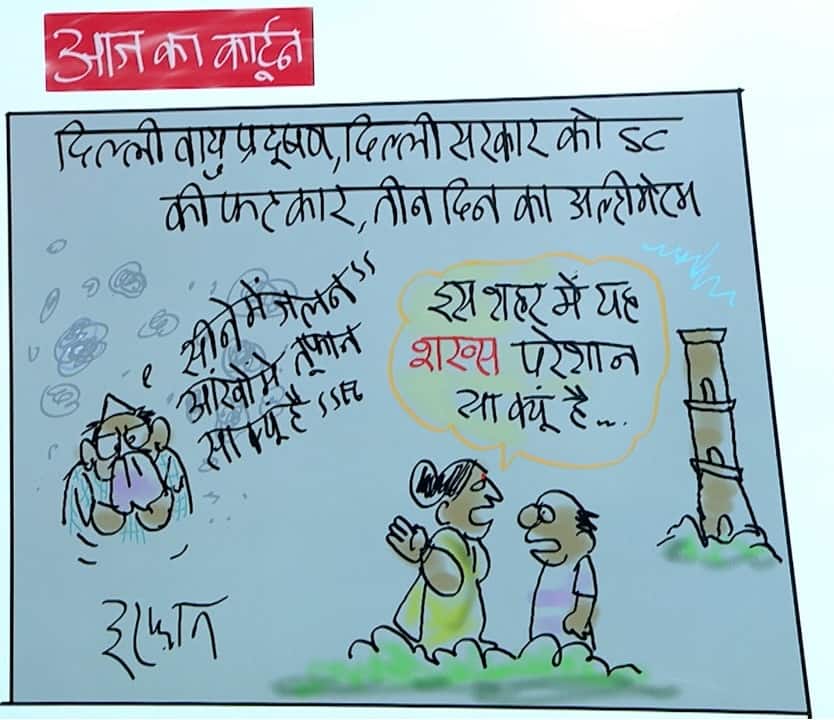 आज का कार्टून
दिल्ली वायु प्रदूषण, दिल्ली सरकार को SC
की फटकार, तीन दिन का अल्टीमेटम
सीने में जलन ऽऽ
आंखों में तूफान
सा क्यूं है ऽऽ
इस शहर में यह
शख्स परेशान
सा क्यूं है...
इरफान